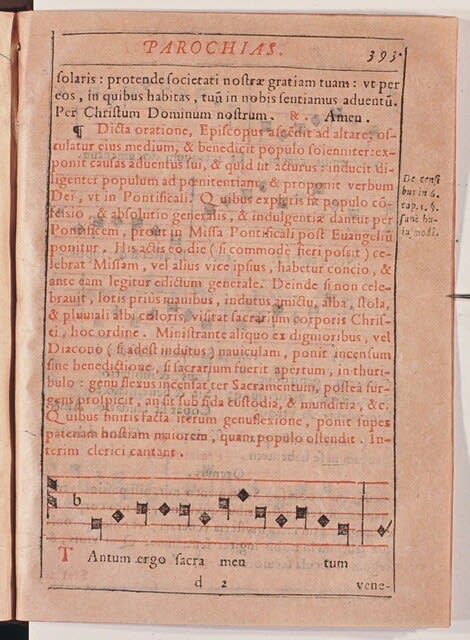 PAROCHIAS.
393.
solaris : protende societati nostræ gratiam tuam : vt per
eos, in quibus habitas, tuũ in nobis sentiamus aduentũ.
Per Christum Dominum nostrum. ℟. Ameu.
¶ Dicta oratione, Episcopus ascẽdit ad altare: os-
culatur eius medium, & benedicit populo solenniter: ex-
ponit causas aduentus sui, & quid sit acturus: inducit di-
ligenter populum ad penitentiam, & proponit verbum
Dei, vt in Pontificali. Quibus expletis fit populo cõ-
fessio, & absolutio generalis, & indulgentiæ dantur per
Pontificem, prout in Missa Pontificali post Euangeliũ
ponitur. His actis eo die (si commodè fieri possit) ce-
lebrat Missam, vel alius vice ipsius, habetur concio, &
ante eam legitur edictum generale. Deinde si non cele-
brauit, lotis prius manibus, indutus amictu, alba, stola,
& pluuiali albi coloris, visitat sacrarium corporis Chris-
ti, hoc ordine. Ministrante aliquo ex dignioribus, vel
Diacono (si adest indutus) nauiculam, ponit incensum
sine benedictione, si sacrarium fuerit apertum, in thuri-
bulo: genuflexus incensat ter Sacramentum, postea sur-
gens prospicit, an sit sub fida custodia, & munditia, &c.
Quibus finitis facta iterum genuflexione, ponit super
patenam hostiam maiorem, quam populo ostendit. In-
terim clerici cantant.
De censi
bus in 6.
cap. 1. §.
sanè hu-
iusmodi.
b
TAntum ergo sacra meu tum
d 2 vene-